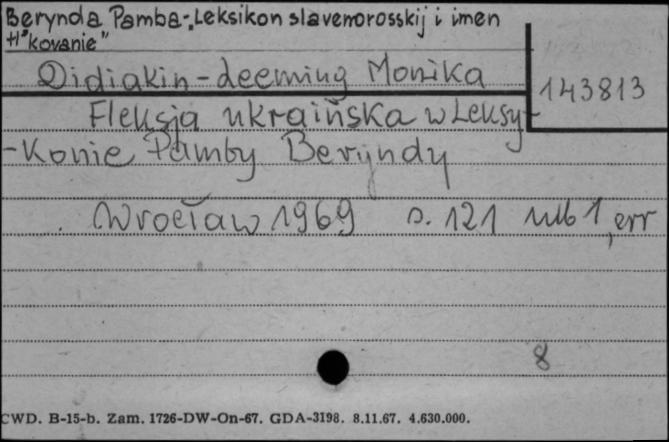 Berynda Pamba-„Leksikon slavenorosskij i imen
tł"kovanie"
Didiakin-deeming Monika
143813
Fleksja ukraińska w Leksy-
-Konie Pamby Beryndy
Wrocław 1969 s. 121 nlb 1, err
8
CWD. B-15-b. Zam. 1726-DW-On-67. GDA-3198. 8.11.67. 4.630.000.